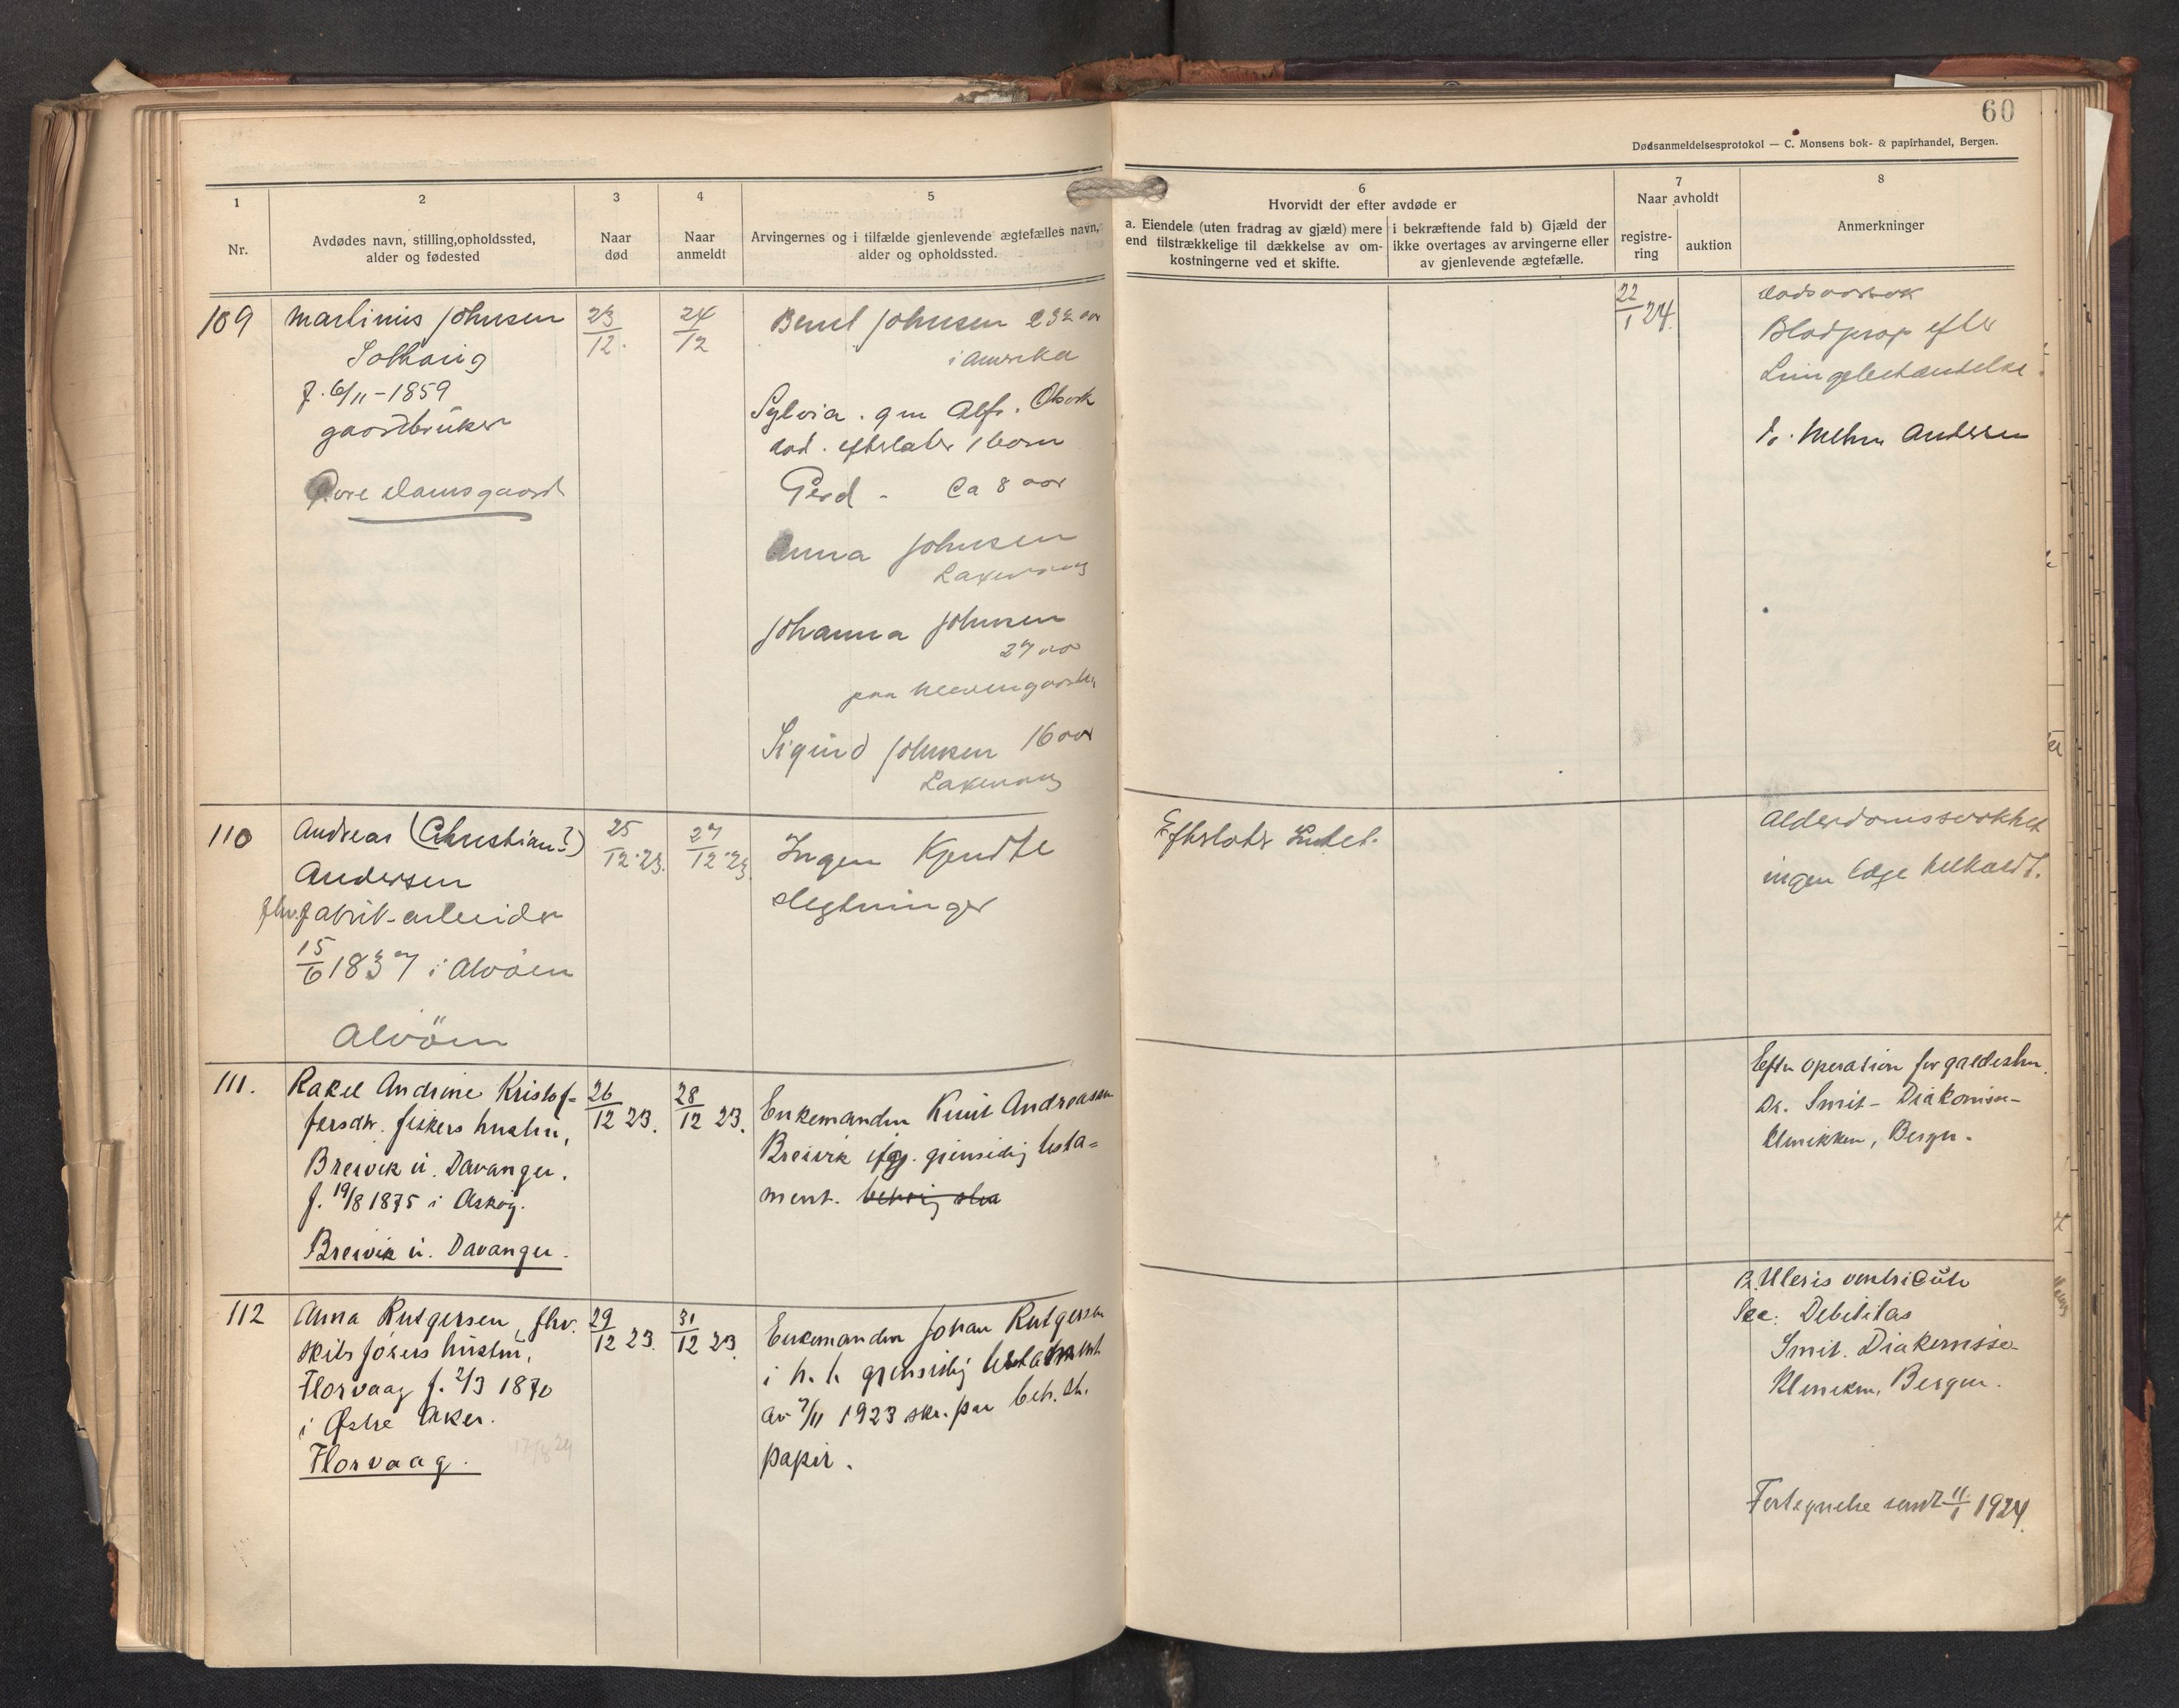 60
Dødsanmeldelsesprotokol — C. Monsens bok- & papirhandel, Bergen.
1
Nr.
2
Avdødes navn, stilling, opholdssted,
alder og fødested
3
Naar
død
4
Naar
anmeldt
5
Arvingernes og i tilfælde gjenlevende ægtefælles navn,
alder og opholdssted.
6
Hvorvidt der efter avdøde er
a. Eiendele (uten fradrag av gjæld) mere
end tilstrækkelige til dækkelse av om-
kostningerne ved et skifte.
i bekræftende fald b) Gjæld der
ikke overtages av arvingerne eller
av gjenlevende ægtefælle.
7
Naar avholdt
registre-
ring
auktion
8
Anmerkninger
109
Martinus Johnsen
Solhaug
f. 6/11 - 1859
gaardbruker
Øvre Damsgaard
23/12.
24/12
Johnsen
i Amerika
Sylvia . gm Alf.
død . efterlater 1 barn
Gerd - Ca 8 aar
Anna Johnsen
Laxevaag
Johanna Johnsen
27 aar
paa
Sigurd Johnsen 16 aar
Laxevaag
22/1 24.
dødsaarsak
Blodprop efter
Andersen
110
Andreas (Christian?)
Andersen
fhv. fabrik-arbeider
15/6 1837 i Alvøen
Alvöen
25/12-23.
27/12-23.
Ingen Kjendte
slegtninger
Efterlater Intet.
Alderdomssvakhet
ingen læge tilkaldt.
111.
Rakel Andrine Kristof=
fersdtr. fiskers hustru,
Breivik u. Davanger.
f. 19/8 1875 i Askøy.
Breivik u. Davanger.
26/12 23.
28/12 23.
Enkemanden Knut Andreassen
Breivik ifg. gjensidig testa=
ment.
Efter operation for galdesten.
Dr. Smit - Diakonisse-
klinikken, Bergen.
112
Anna Rutgersen, fhv.
skibsførers hustru,
Florvaag f. 2/3 1870
i Østre Aker.
Florvaag.
29/12 23.
31/12 23.
Enkemanden Johan Rutgersen
i h. t. gjensidig testament
av 7/11 1923 skr. paa beh. st.
papir.
Ulcus ventriculi
Sec: Debilitas
Smit. Diakonisse-
Kliniken, Bergen.
Fortegnelse sendt 11/1 1924.